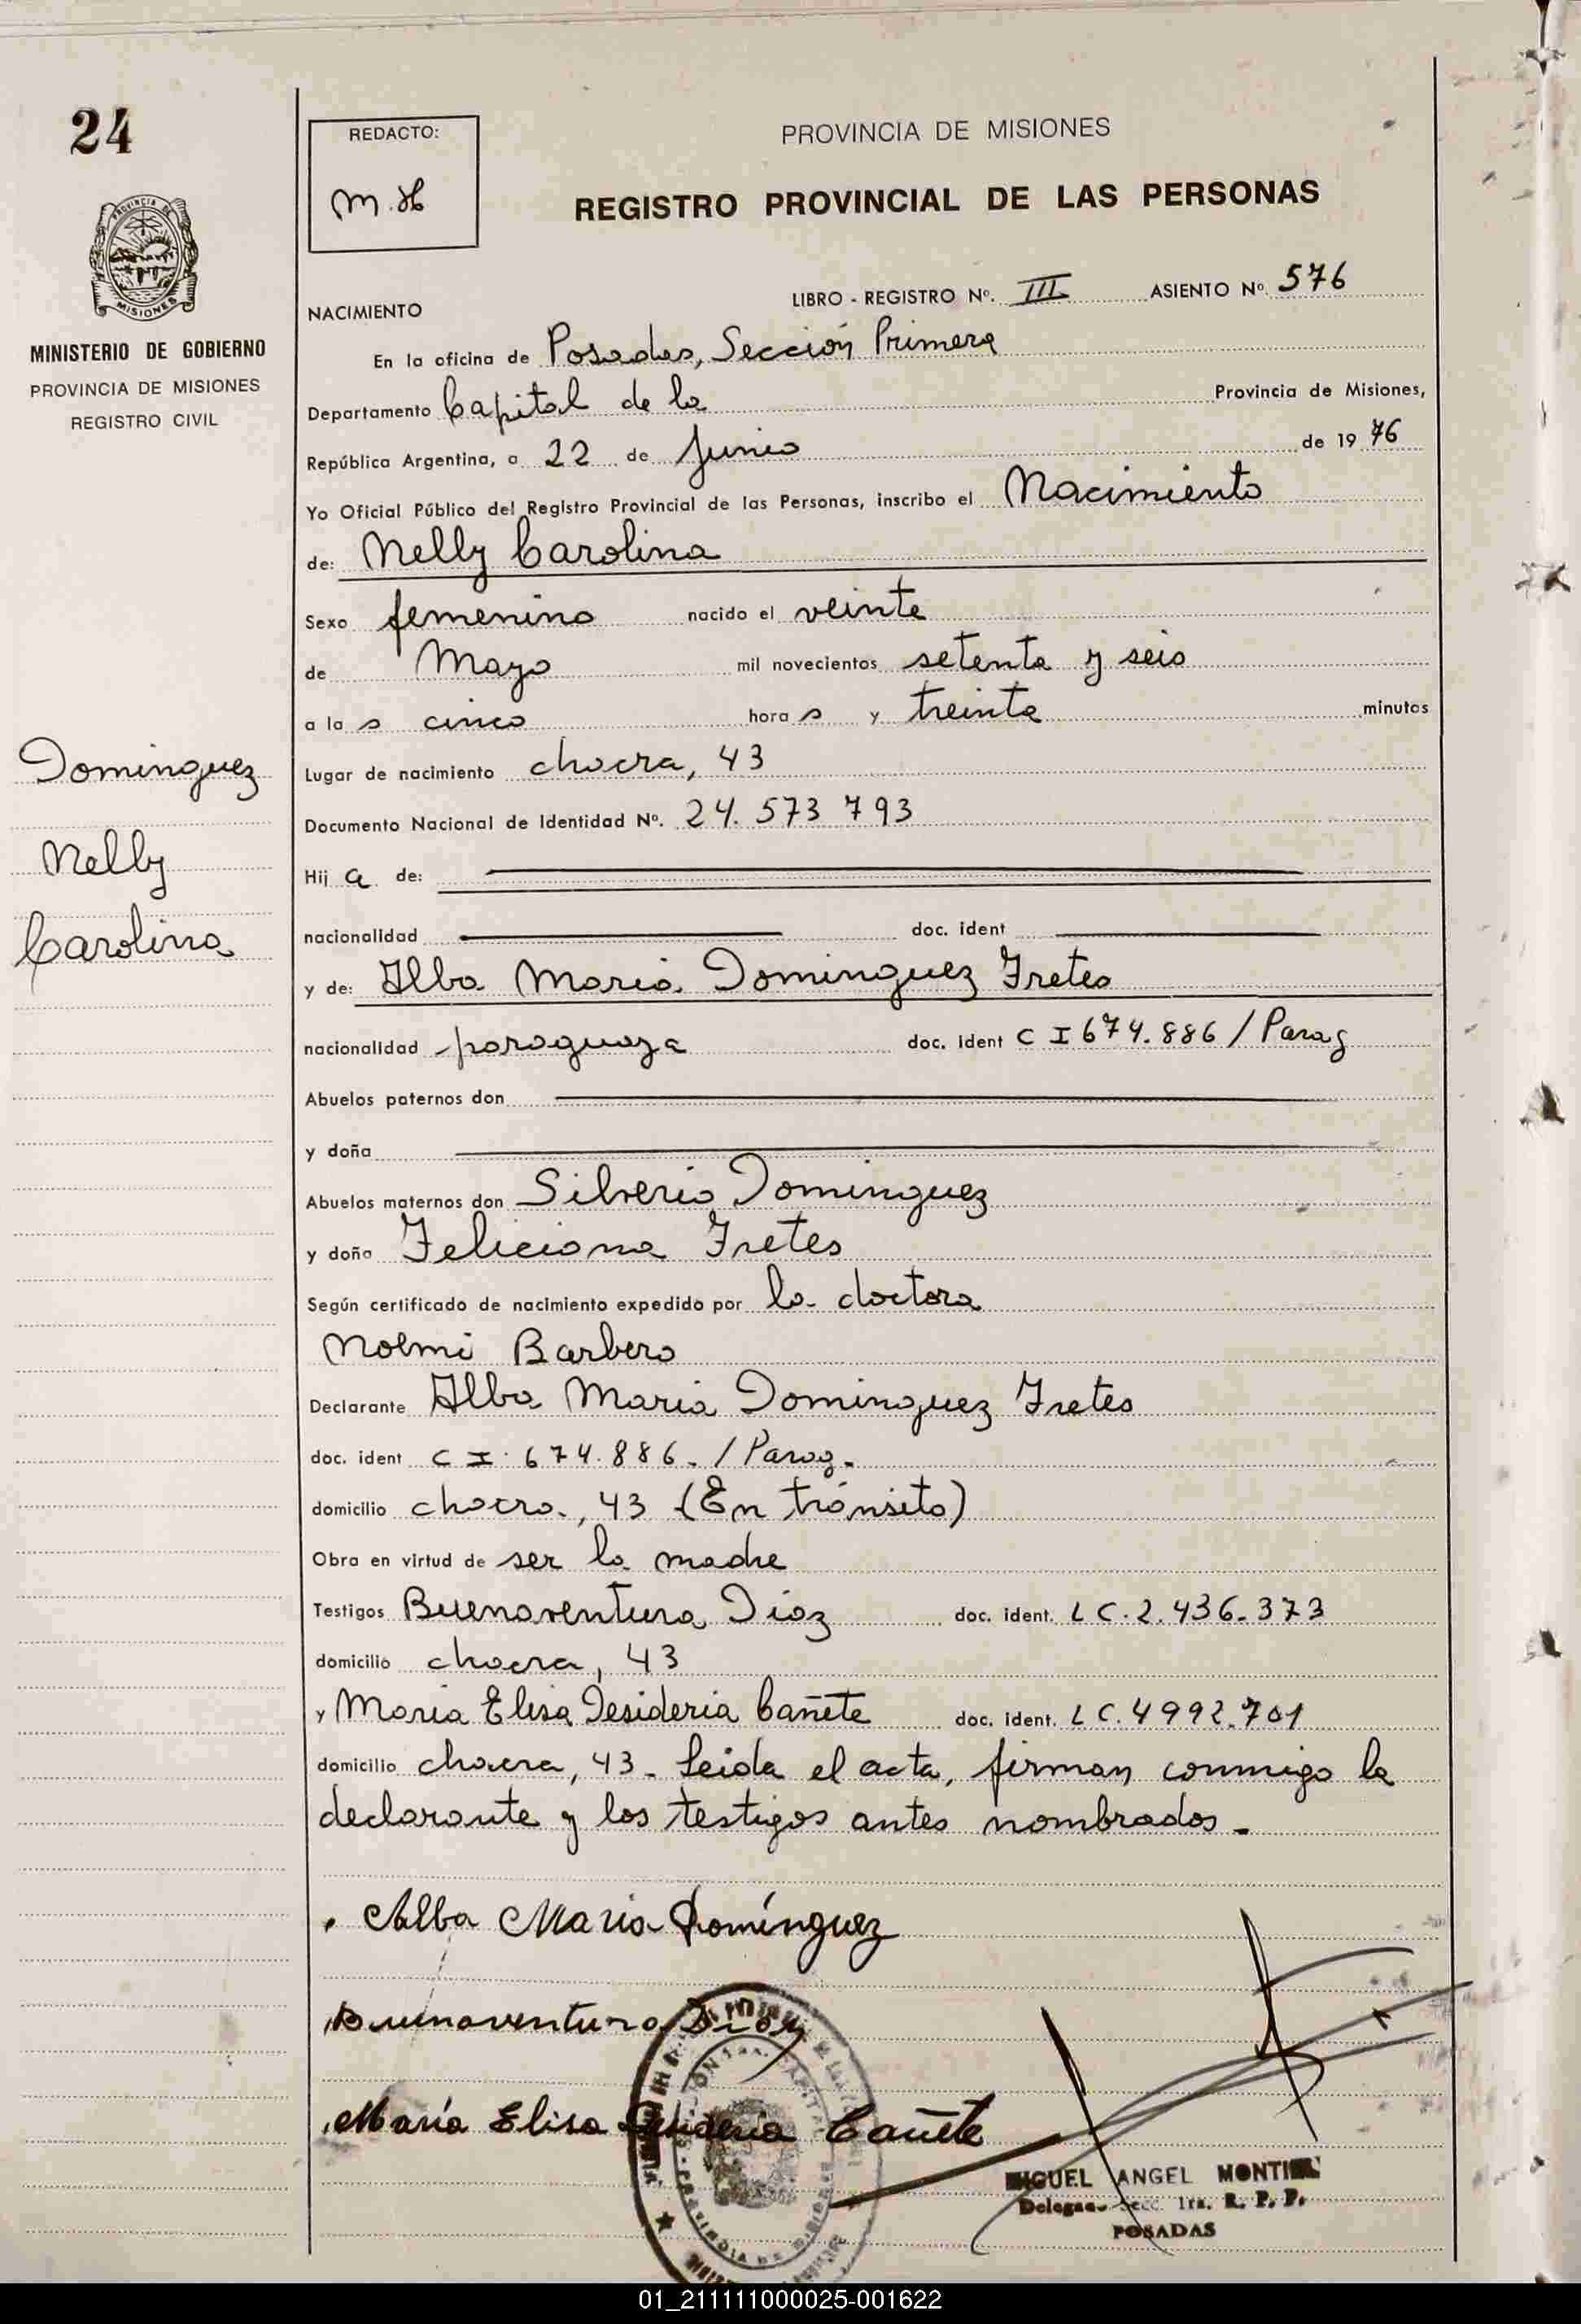 24
REDACTO:
M.H
PROVINCIA DE MISIONES
REGISTRO PROVINCIAL DE LAS PERSONAS
MISIONES
MINISTERIO DE GOBIERNO
PROVINCIA DE MISIONES
REGISTRO CIVIL
NACIMIENTO LIBRO - REGISTRO Nº. III ASIENTO Nº. 576
En la oficina de Posadas, Sección Primera
Departamento Capital de la Provincia de Misiones,
República Argentina, a 22 de Junio de 1976
Yo Oficial Público del Registro Provincial de las Personas, inscribo el Nacimiento
de: Nelly Carolina
Sexo femenino nacido el veinte
de Mayo mil novecientos setenta y seis
a las cinco horas y treinta minutos
Domínguez
Nelly
Carolina
Lugar de nacimiento chacra, 43
Documento Nacional de Identidad Nº. 24.573 793
Hija de:
nacionalidad doc. ident
y de: Alba María Domínguez Fretes
nacionalidad paraguaya doc. ident C I 674.886 / Parag
Abuelos paternos don
y doña
Abuelos maternos don Silverio Domínguez
y doña Feliciana Fretes
Según certificado de nacimiento expedido por la doctora
Noemi Barbero
Declarante Alba María Domínguez Fretes
doc. ident C I. 674.886. / Parag.
domicilio chacra, 43 (En tránsito)
Obra en virtud de ser la madre
Testigos Buenaventura Díaz doc. ident. L C. 2.436.373
domicilio chacra, 43
y María Elisa Desideria Cañete doc. ident. L C. 4992.701
domicilio chacra, 43. Leída el acta, firman conmigo la
declarante y los testigos antes nombrados.
Alba Maria Domínguez
Buenaventura Díaz
María Elisa Desideria Cañete
MIGUEL ANGEL MONTIEL
Delegado Secc. 1ra. R. P. P.
POSADAS
01_211111000025-001622